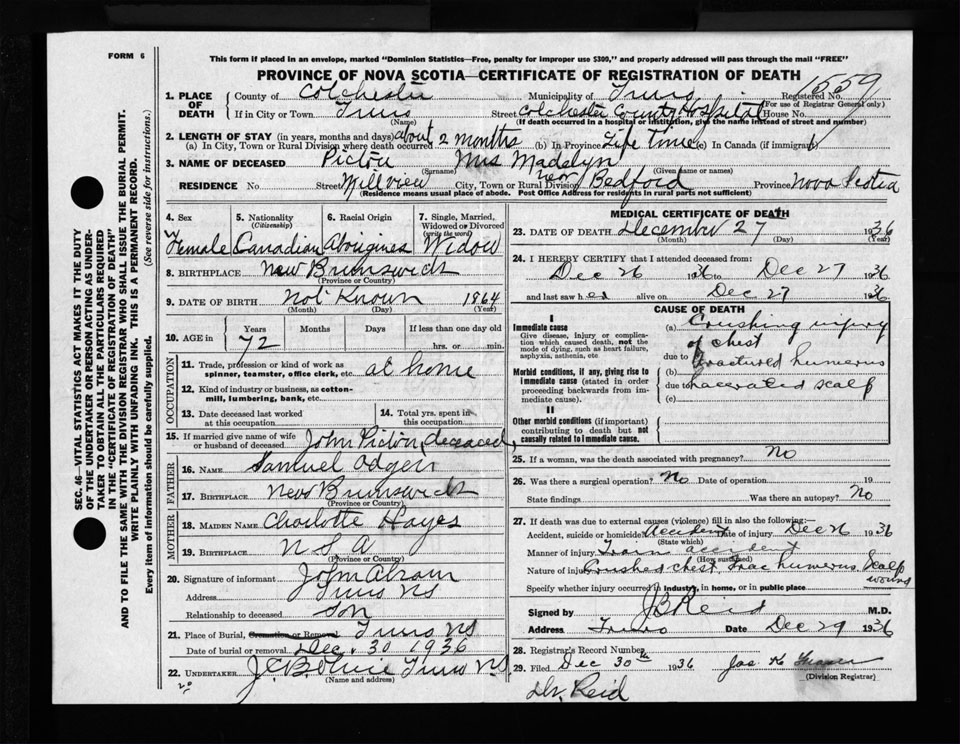 FORM 6
This form if placed in an envelope, marked "Dominion Statistics—Free, penalty for improper use $300," and properly addressed will pass through the mail "FREE"
PROVINCE OF NOVA SCOTIA—CERTIFICATE OF REGISTRATION OF DEATH
1559
1. PLACE OF DEATH
County of Colchester Municipality of Truro Registered No.
(For use of Registrar General only)
If in City or Town Truro Street Colchester County Hospital House No.
(Name) (If death occurred in a hospital or institution, give the name instead of street and number)
2. LENGTH OF STAY (in years, months and days)
(a) In City, Town or Rural Division where death occurred about 2 months (b) In Province Life Time (c) In Canada (if immigrant)
3. NAME OF DECEASED Pictou Mrs Madelyn
(Surname) (Given name or names)
RESIDENCE No. Street Millview City, Town or Rural Division near Bedford Province Nova Scotia
(Residence means usual place of abode. Post Office Address for residents in rural parts not sufficient)
4. Sex Female
5. Nationality (Citizenship) Canadian
6. Racial Origin Aborigines
7. Single, Married, Widowed or Divorced (write the word) Widow
8. BIRTHPLACE New Brunswick
(Province or Country)
9. DATE OF BIRTH Not Known 1864
(Month) (Day) (Year)
10. AGE in Years 72 Months Days If less than one day old hrs. or min.
OCCUPATION
11. Trade, profession or kind of work as spinner, teamster, office clerk, etc. at home
12. Kind of industry or business, as cotton-mill, lumbering, bank, etc.
13. Date deceased last worked at this occupation
14. Total yrs. spent in this occupation
15. If married give name of wife or husband of deceased John Pictou, deceased,
FATHER
16. NAME Samuel
17. BIRTHPLACE New Brunswick
(Province or Country)
MOTHER
18. MAIDEN NAME Charlotte Hayes
19. BIRTHPLACE
(Province or Country)
20. Signature of informant John
Address Truro NS
Relationship to deceased Son
21. Place of Burial, Cremation or Removal Truro NS
Date of burial or removal Dec. 30 1936
22. UNDERTAKER Truro NS.
(Name and address)
MEDICAL CERTIFICATE OF DEATH
23. DATE OF DEATH December 27 1936
(Month) (Day) (Year)
24. I HEREBY CERTIFY that I attended deceased from:
Dec 26 1936 to Dec 27 1936
and last saw her alive on Dec 27 1936
CAUSE OF DEATH
I
Immediate cause
Give disease, injury or complication which caused death, not the mode of dying, such as heart failure, asphyxia, asthenia, etc
Morbid conditions, if any, giving rise to immediate cause (stated in order proceeding backwards from immediate cause).
II
Other morbid conditions (if important) contributing to death but not causally related to I immediate cause.
(a) Crushing injury
of chest
due to
(b) fractured humerus
due to lacerated scalp
(c)
25. If a woman, was the death associated with pregnancy? No
26. Was there a surgical operation? No Date of operation 19
State findings Was there an autopsy? No
27. If death was due to external causes (violence) fill in also the following:—
Accident, suicide or homicide? Accident Date of injury Dec 26 1936
(State which)
Manner of injury Train accident
(How sustained)
Nature of injury Crushed chest, frac humerus Scalp wound
Specify whether injury occurred in industry, in home, or in public place
Signed by J B Reid M.D.
Address Truro Date Dec 29 1936
28. Registrar's Record Number
29. Filed Dec 30th 1936 Jas
(Division Registrar)
Dr. Reid
SEC. 46—VITAL STATISTICS ACT MAKES IT THE DUTY
OF THE UNDERTAKER OR PERSON ACTING AS UNDER-
TAKER TO OBTAIN ALL THE PARTICULARS REQUIRED
IN THE "CERTIFICATE OF REGISTRATION OF DEATH"
AND TO FILE THE SAME WITH THE DIVISION REGISTRAR WHO SHALL ISSUE THE BURIAL PERMIT.
WRITE PLAINLY WITH UNFADING INK. THIS IS A PERMANENT RECORD.
Every item of information should be carefully supplied.
(See reverse side for instructions.)